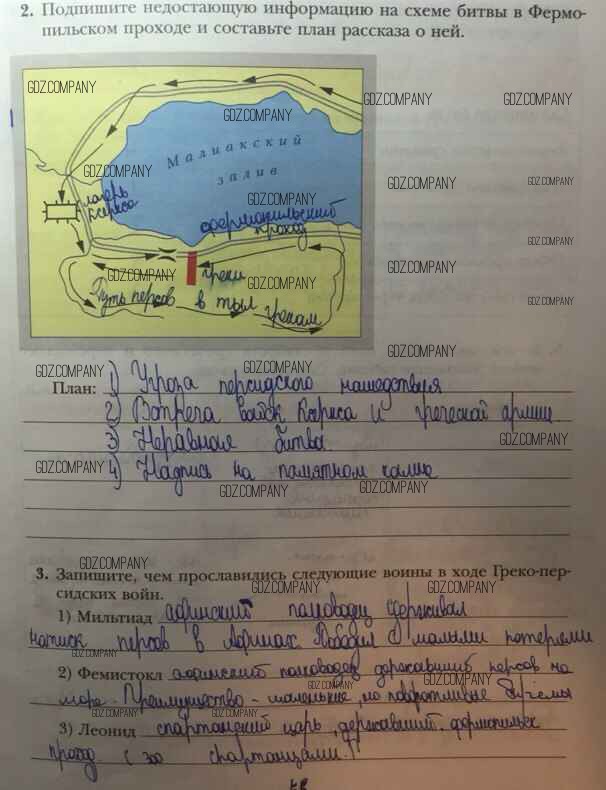 2. Подпишите недостающую информацию на схеме битвы в Фермо-
пильском проходе и составьте план рассказа о ней.
GDZ.COMPANY
GDZ.COMPANY GDZ.COMPANY
GDZ.COMPANY
Малиакский
залив
GDZ.COMPANY
GDZ.COMPANY GDZ.COMPANY
лагерь
Ксеркса
GDZ.COMPANY
фермопильский
проход
GDZ.COMPANY
GDZ.COMPANY
GDZ.COMPANY
греки
GDZ.COMPANY
Путь персов в тыл грекам
GDZ.COMPANY
GDZ.COMPANY
GDZ.COMPANY GDZ.COMPANY
План: 1) Угроза персидского нашествия
2) Встреча войск Ксеркса и греческой армии.
3) Неравная битва.
GDZ.COMPANY
4) Надпись на памятном камне
GDZ.COMPANY
GDZ.COMPANY GDZ.COMPANY
GDZ.COMPANY
3. Запишите, чем прославились следующие воины в ходе Греко-пер-
сидских войн.
GDZ.COMPANY GDZ.COMPANY
1) Мильтиад афинский полководец сдерживал
натиск персов в Афинах. Победил с малыми потерями
GDZ.COMPANY GDZ.COMPANY
2) Фемистокл афинский полководец державший персов на
море. Преимущество - маленькие, но поворотливые
GDZ.COMPANY GDZ.COMPANY GDZ.COMPANY
3) Леонид спартанский царь, державший фермопильск
проход с 300 спартанцами.
GDZ.COMPANY GDZ.COMPANY